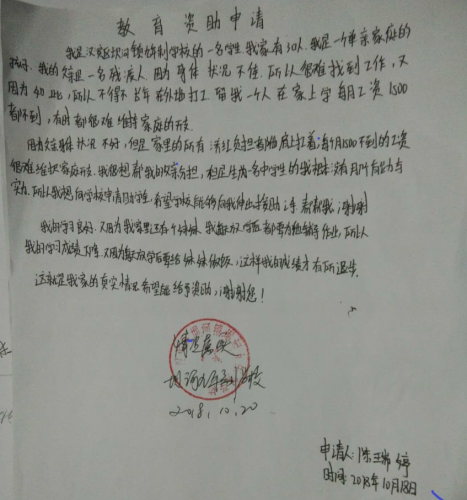 教育资助申请
我是汉家级河镇 制学校的一名学生 我家有3口人.我是一个单亲家庭的
孩子.我的父亲是一名残疾人.因为身体状况不佳.所以很难找到工作,又
因为如此,所以不得不长年在外打工 留我一个人在家上学 每月工资1500
都不到,有时都很难维持家庭的开支.
因为父亲身体状况不好,但是家里的所有 负担都 上扛着,每个月1500不到的工资
很难维持家庭开支.我很想帮我的父亲分担,但是生为一名中学生的我根本没有 能力与
实力.所以我想向学校申请助学金,希望学校能够向我伸出援助之手 帮帮我,谢谢
我的学习良好.又因为我家里还有个妹妹.我每次放学后都要为她辅导作业,所以
我的学习成绩下降.又因为每次放学后要给妹妹做饭,这样我的成绩才有所退步.
这就是我家的真实情况希望能给予资助,谢谢您!
情况属实
2018.10.20
申请人:陈 婷
时间:2018年10月18日